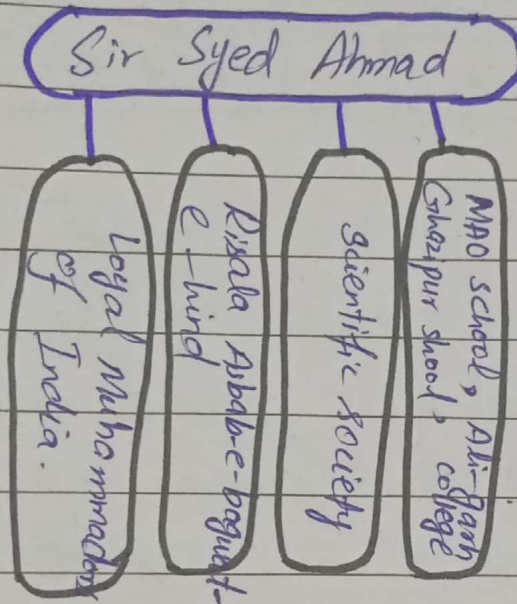 Sir Syed Ahmad
Loyal Muhammadans
of India.
Risala Asbab-e-bagwat-
e-hind
Scientific society
MAO school, Ali-garh
Ghazipur shool, college